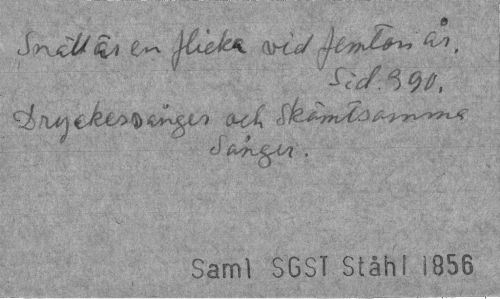 Snäll är en flicka vid femton år.
Sid. 390.
Dryckessånger och Skämtsamma
Sånger.
Saml SGST Ståhl 1856